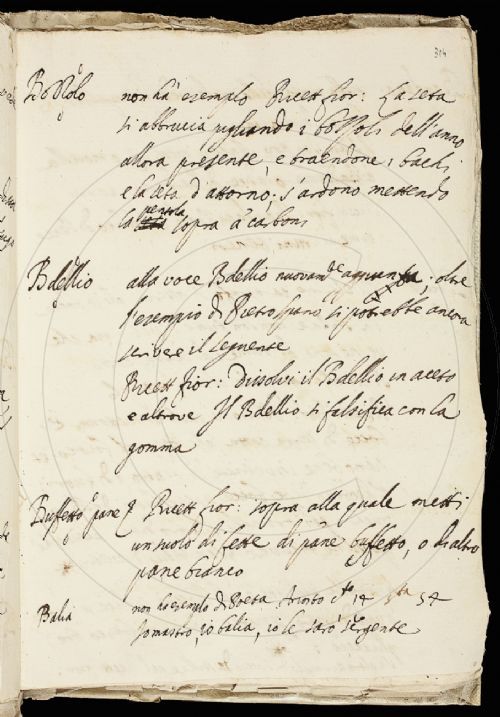 304
Bozzolo non ha esempio Ricett fior: La seta
si abbrucia pigliando i bozzoli dell'anno
allora presente, e traendone i bachi
e la seta d'attorno; s'ardono mettendo
la pentola sopra a carboni
Bdellio alla voce Bdellio nuovamte aggiunta; oltre
l'esempio di Pietro Spano si potrebbe ancora
scrivere il seguente
Ricett fior: Dissolvi il Bdellio in aceto
e altrove Il Bdellio si falsifica con la
gomma
Buffetto pane Ricett fior: sopra alla quale metti
un suolo di fette di pane buffetto, o d'altro
pane bianco
Balia non ha esempio di Poeta. Ariosto cto 14 sta 54
io mastro, io balia, io le sarò sergente